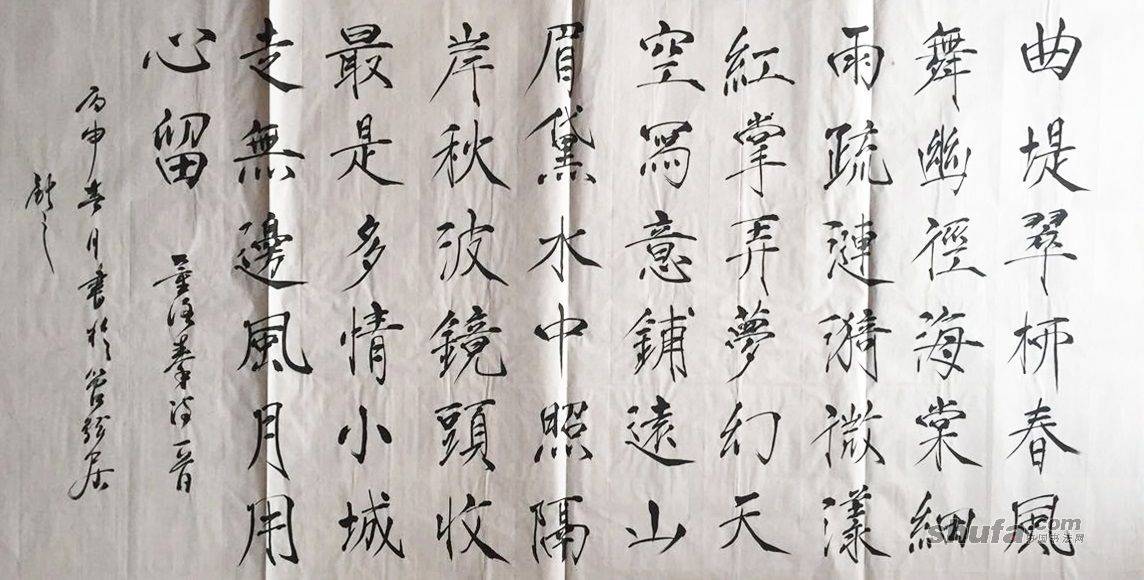 曲堤翠柳春風
舞幽徑海棠細
雨疏漣漪微漾
紅掌弄夢幻天
空寫意鋪遠山
眉黛水中照隔
岸秋波鏡頭收
最是多情小城
走無邊風月用
心留
詩一首
丙申春月書於
shufa.com
中国书法网